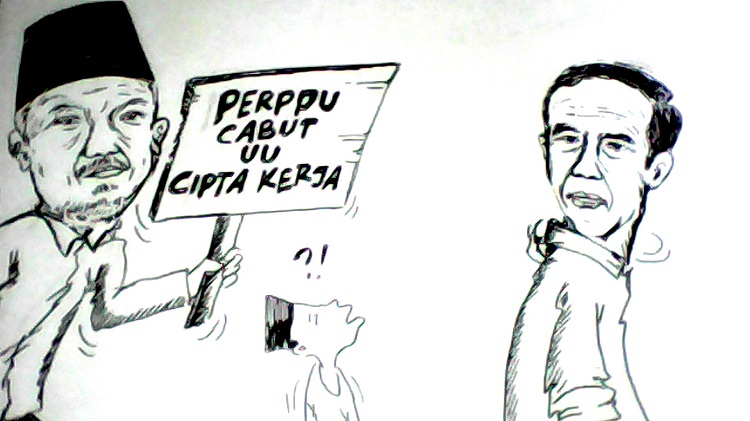 PERPPU
CABUT
UU
CIPTA KERJA
?!